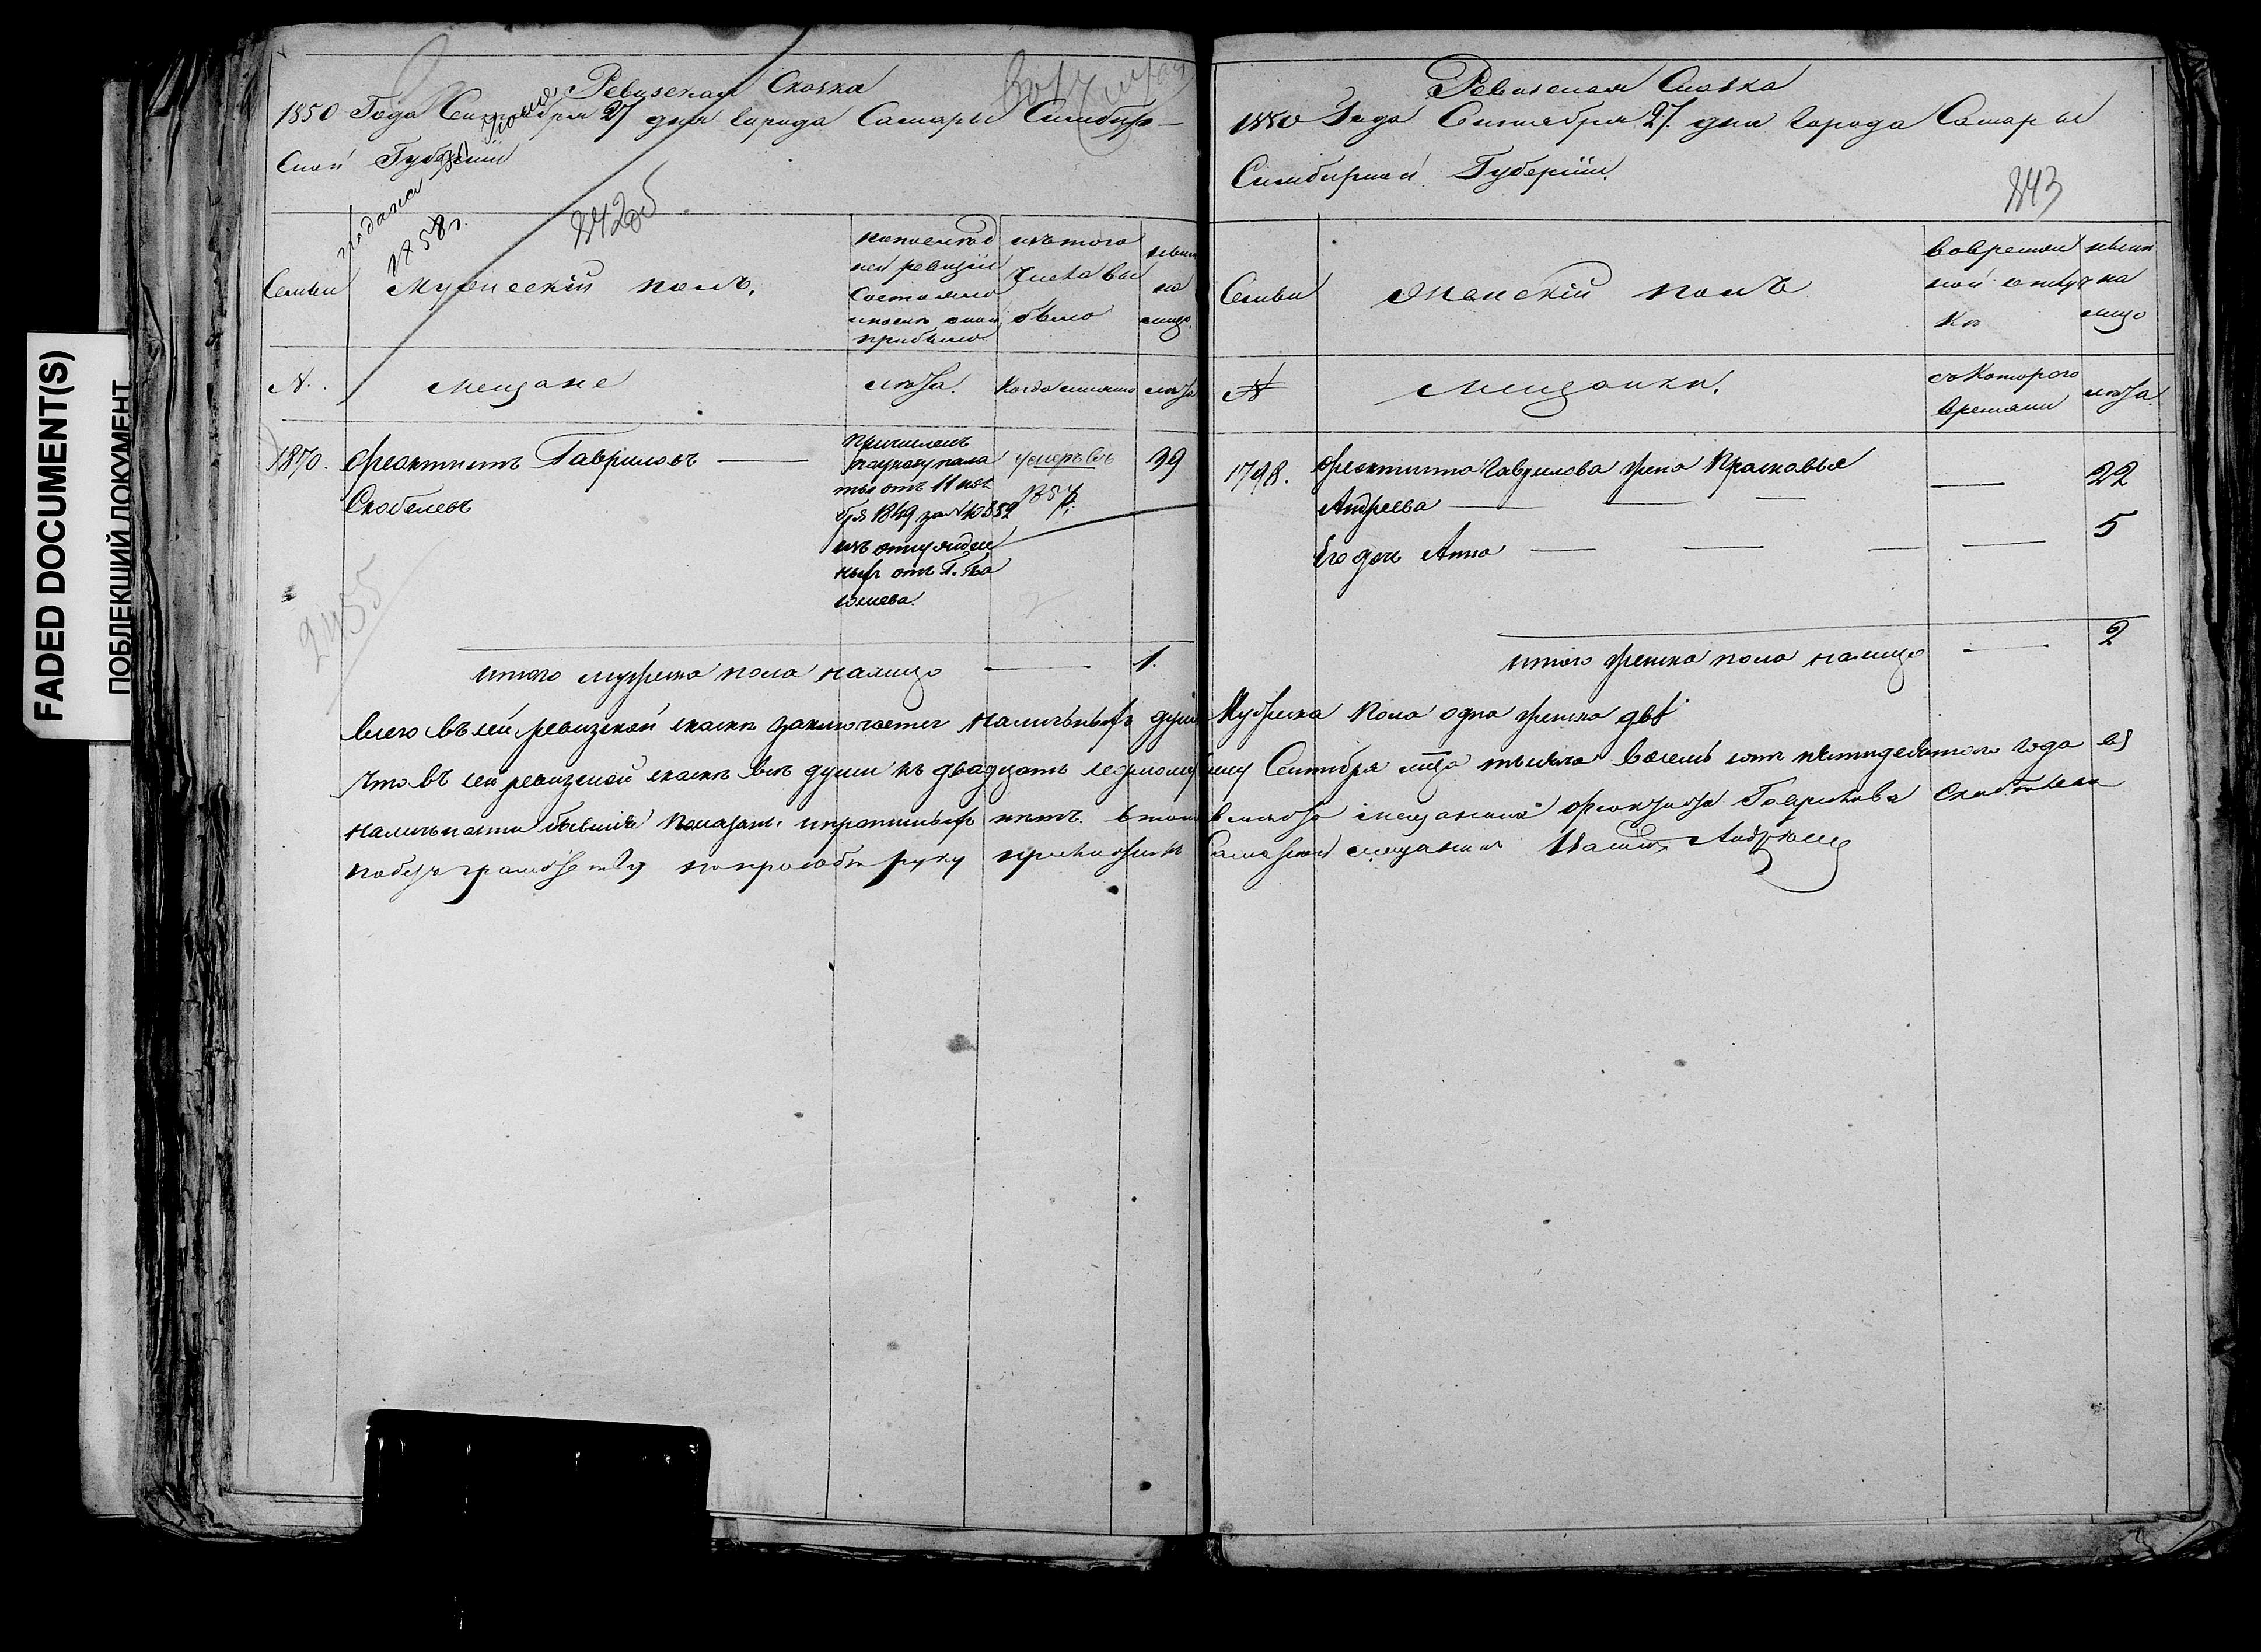 FADED DOCUMENT(S)
ПОБЛЕКШИЙ ДОКУМЕНТ
Ревизская Сказка
1850 Года Сентября 27 дня города Самары Симбир-
ской Губернии
подана
1858 г.
242 об
Семьи
Мужеский полъ.
по последней ревизии состояло и после оной прибыло
изъ того числа выбыло
ныне на лицо
№.
Мещане
лета.
Когда именно
лета
1870. Феоктистъ Гавриловъ
Скобелевъ
Причисленъ
по указу пала
ты отъ 11 ноя
бря 1849 за № 10852
изъ отпущен
ныхъ отъ Г.
умеръ въ
1857.
39
2455
итого мужеска пола налицо — 1.
Ревизская Сказка
1850 Года Сентября 27 дня Города Самары
Симбирской Губернии.
243
Семьи
Женский полъ
во временной отлучке
ныне на лицо
№
Мещанки.
съ которого времени
лета.
1798. Феоктиста Гаврилова жена Прасковья
Андреева — 22
Его дочь Анна — 5
итого женска пола налицо — 2
Всего въ сей ревизской сказке заключается наличныхъ душъ Мужеска пола одна женска две
Что въ сей ревизской сказке все души къ двадцать седьмому Сентября мца тысяча восемь сотъ пятидесятого года въ
наличности бывшие показаны и прописныхъ нетъ. в томъ вместо мещанина Феоктиста Гаврилова Скобелева
по безграмотству по прозьбе руку приложилъ Самарской мещанинъ